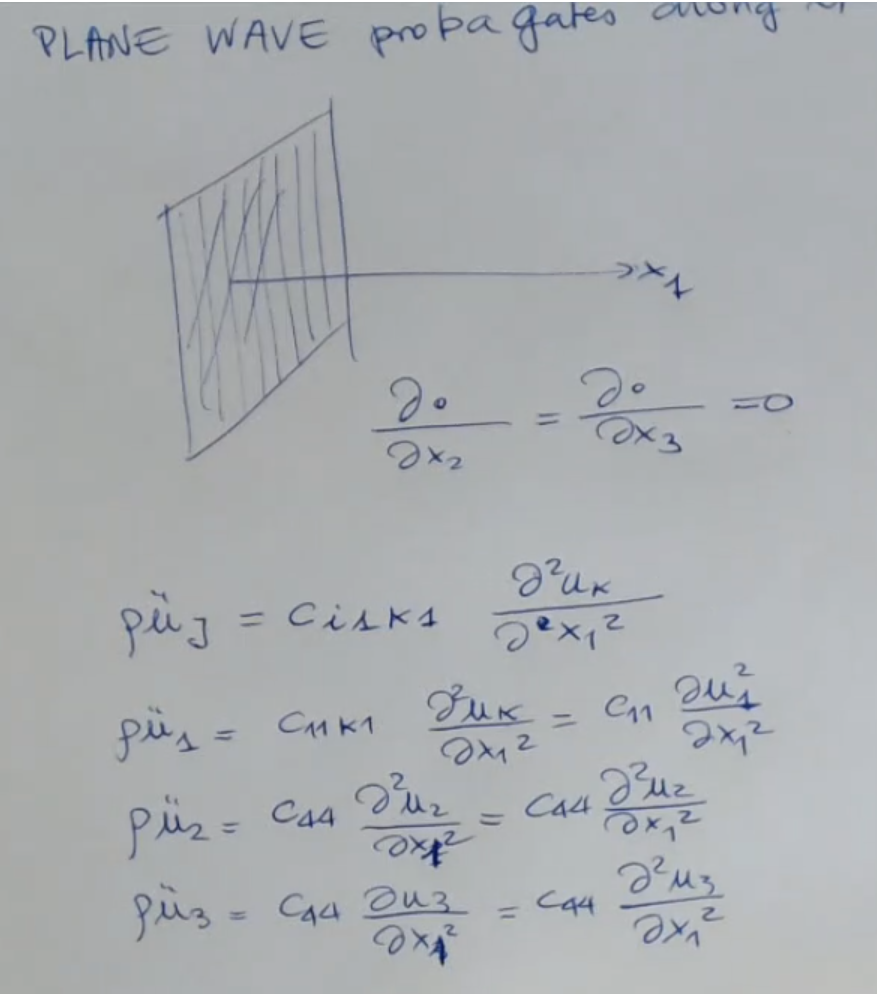 PLANE WAVE propagates along
x₁
∂∘/∂x₂ = ∂∘/∂x₃ = 0
ρü_J = c_{i1K1} ∂²u_K/∂x₁²
ρü₁ = c_{11K1} ∂²u_K/∂x₁² = c₁₁ ∂u₁²/∂x₁²
ρü₂ = c₄₄ ∂²u₂/∂x₁² = c₄₄ ∂²u₂/∂x₁²
ρü₃ = c₄₄ ∂u₃/∂x₁² = c₄₄ ∂²u₃/∂x₁²